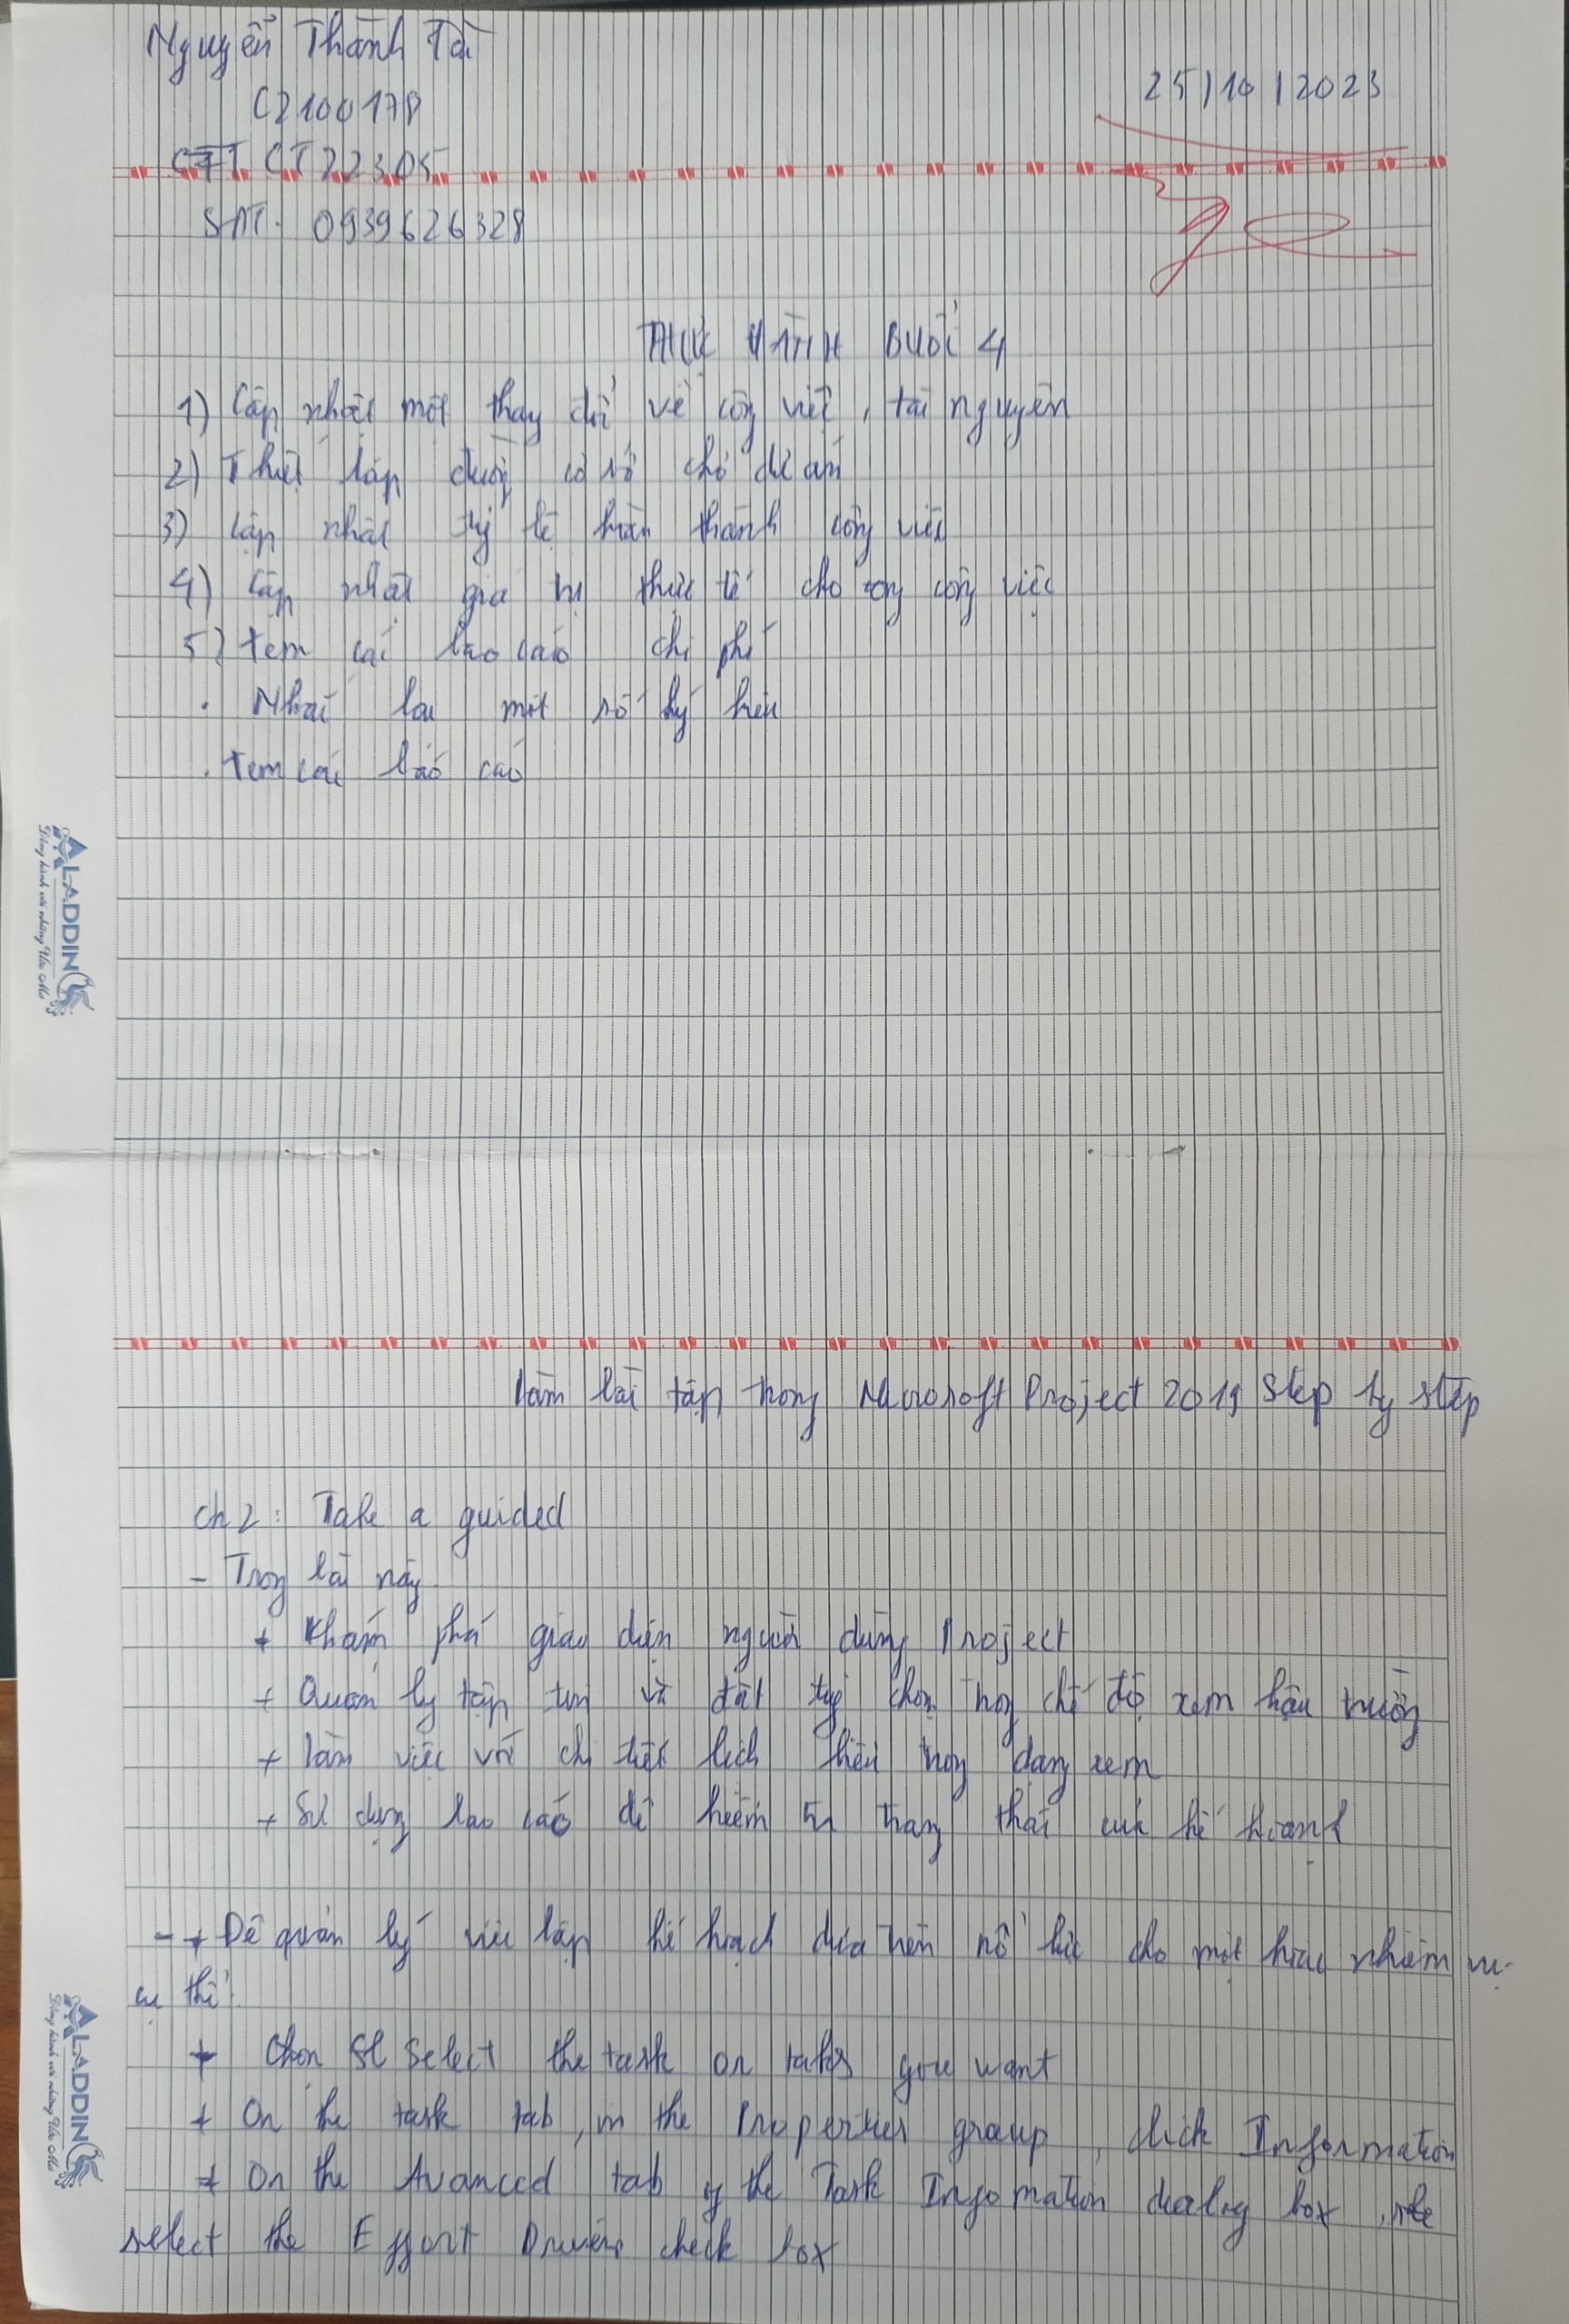 Nguyễn Thành Tài
25/10/2023
C2100178
CTT CT22305
SĐT: 0939626328
THỰC HÀNH BUỔI 4
1) Cập nhật một thay đổi về công việc, tài nguyên
2) Thiết lập đường cơ sở cho dự án
3) Cập nhật tỷ lệ hoàn thành công việc
4) Cập nhật giá trị thực tế cho công việc
5) Xem các báo cáo chi phí
. Nhắc lại một số ký hiệu
. Xem các báo cáo
ALADDIN
Đồng hành với những Ước Mơ
Làm bài tập trong Microsoft Project 2019 Step by step
Ch 2: Take a guided
- Trong bài này
+ Khám phá giao diện người dùng Project
+ Quản lý tập tin và đặt tuỳ chọn trong chế độ xem hậu trường
+ Làm việc với chi tiết lịch biểu trong dạng xem
+ Sử dụng báo cáo để kiểm tra trạng thái của kế hoạch
- + Để quản lý việc lập kế hoạch dựa trên nỗ lực cho một hoặc nhiệm vụ
cụ thể:
+ Chọn Select the task or taks you want
+ On the task tab, in the Properties group, click Information
+ On the Avanced tab of the Task Infomation dialog box,
select the Effort Driven check box
ALADDIN
Đồng hành với những Ước Mơ